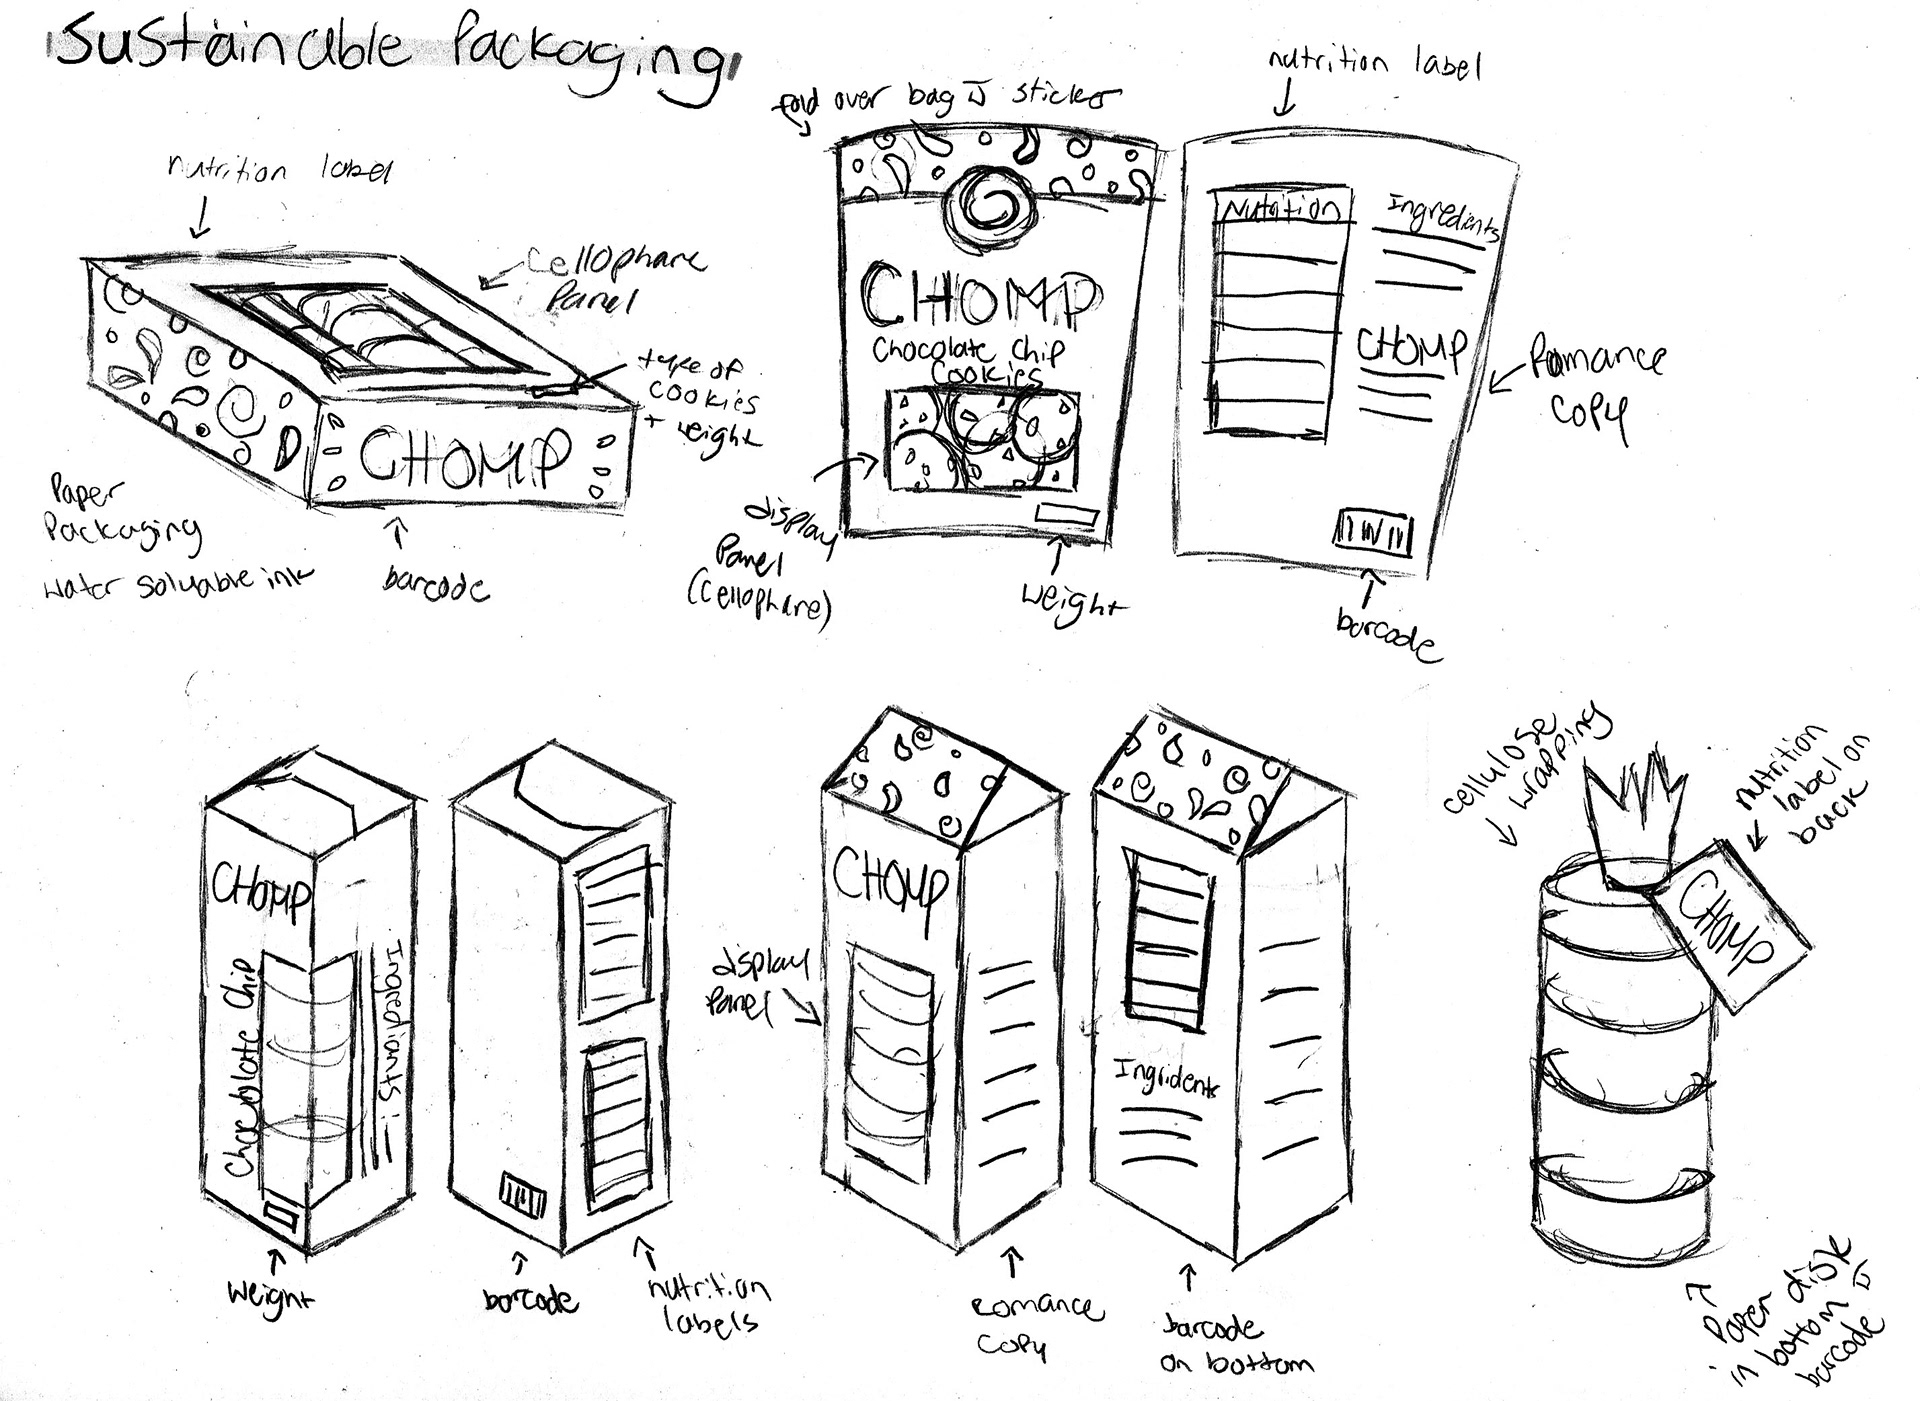 Sustainable Packaging
nutrition label
Cellophane
Panel
type of
cookies
+ weight
CHOMP
Paper
Packaging
water soluable ink
barcode
fold over bag w sticker
CHOMP
Chocolate Chip
Cookies
display
Panel
(cellophane)
weight
nutrition label
Nutrition
Ingredients
CHOMP
Romance
Copy
barcode
CHOMP
Chocolate Chip
Ingrediants:
weight
barcode
nutrition
labels
CHOMP
display
Panel
romance
copy
Ingridents
barcode
on bottom
cellulose
wrapping
nutrition
label on
back
CHOMP
Paper disk
in bottom w
barcode